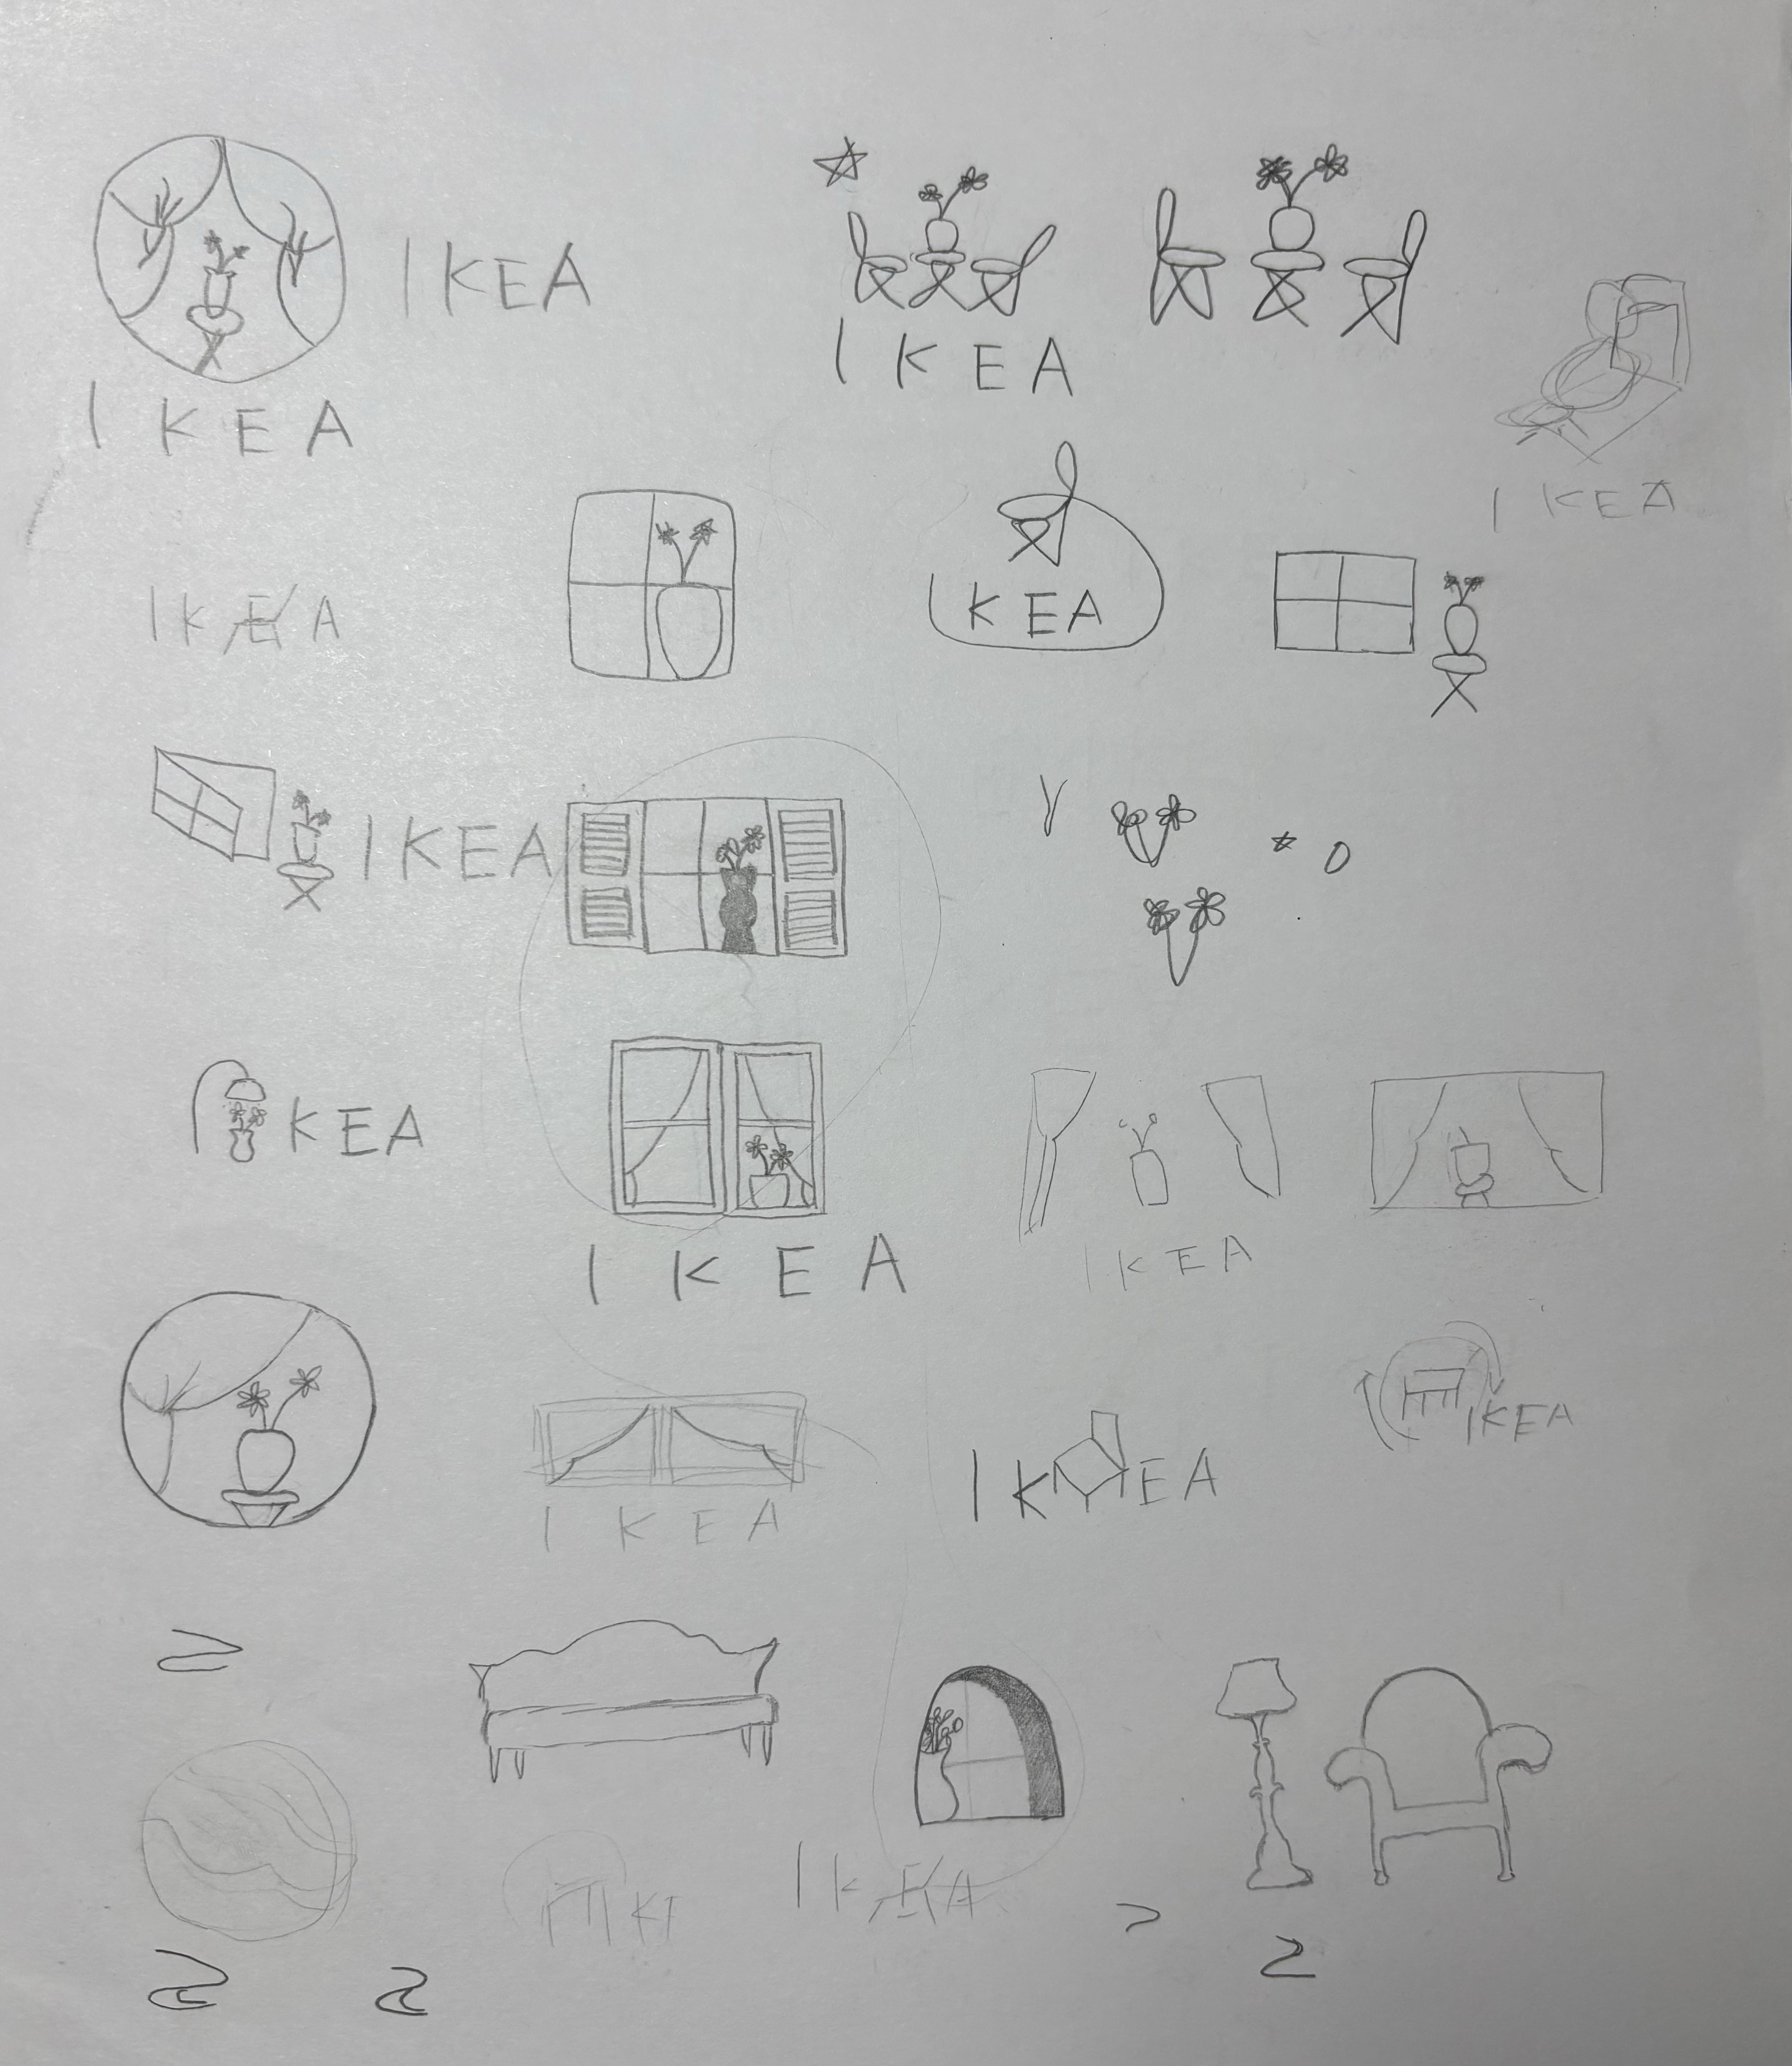 IKEA
IKEA
IKEA
IKEA
IKEA
KEA
IKEA
KEA
IKEA
IKEA
IKEA
IKEA
IKEA
IKEA
IKEA